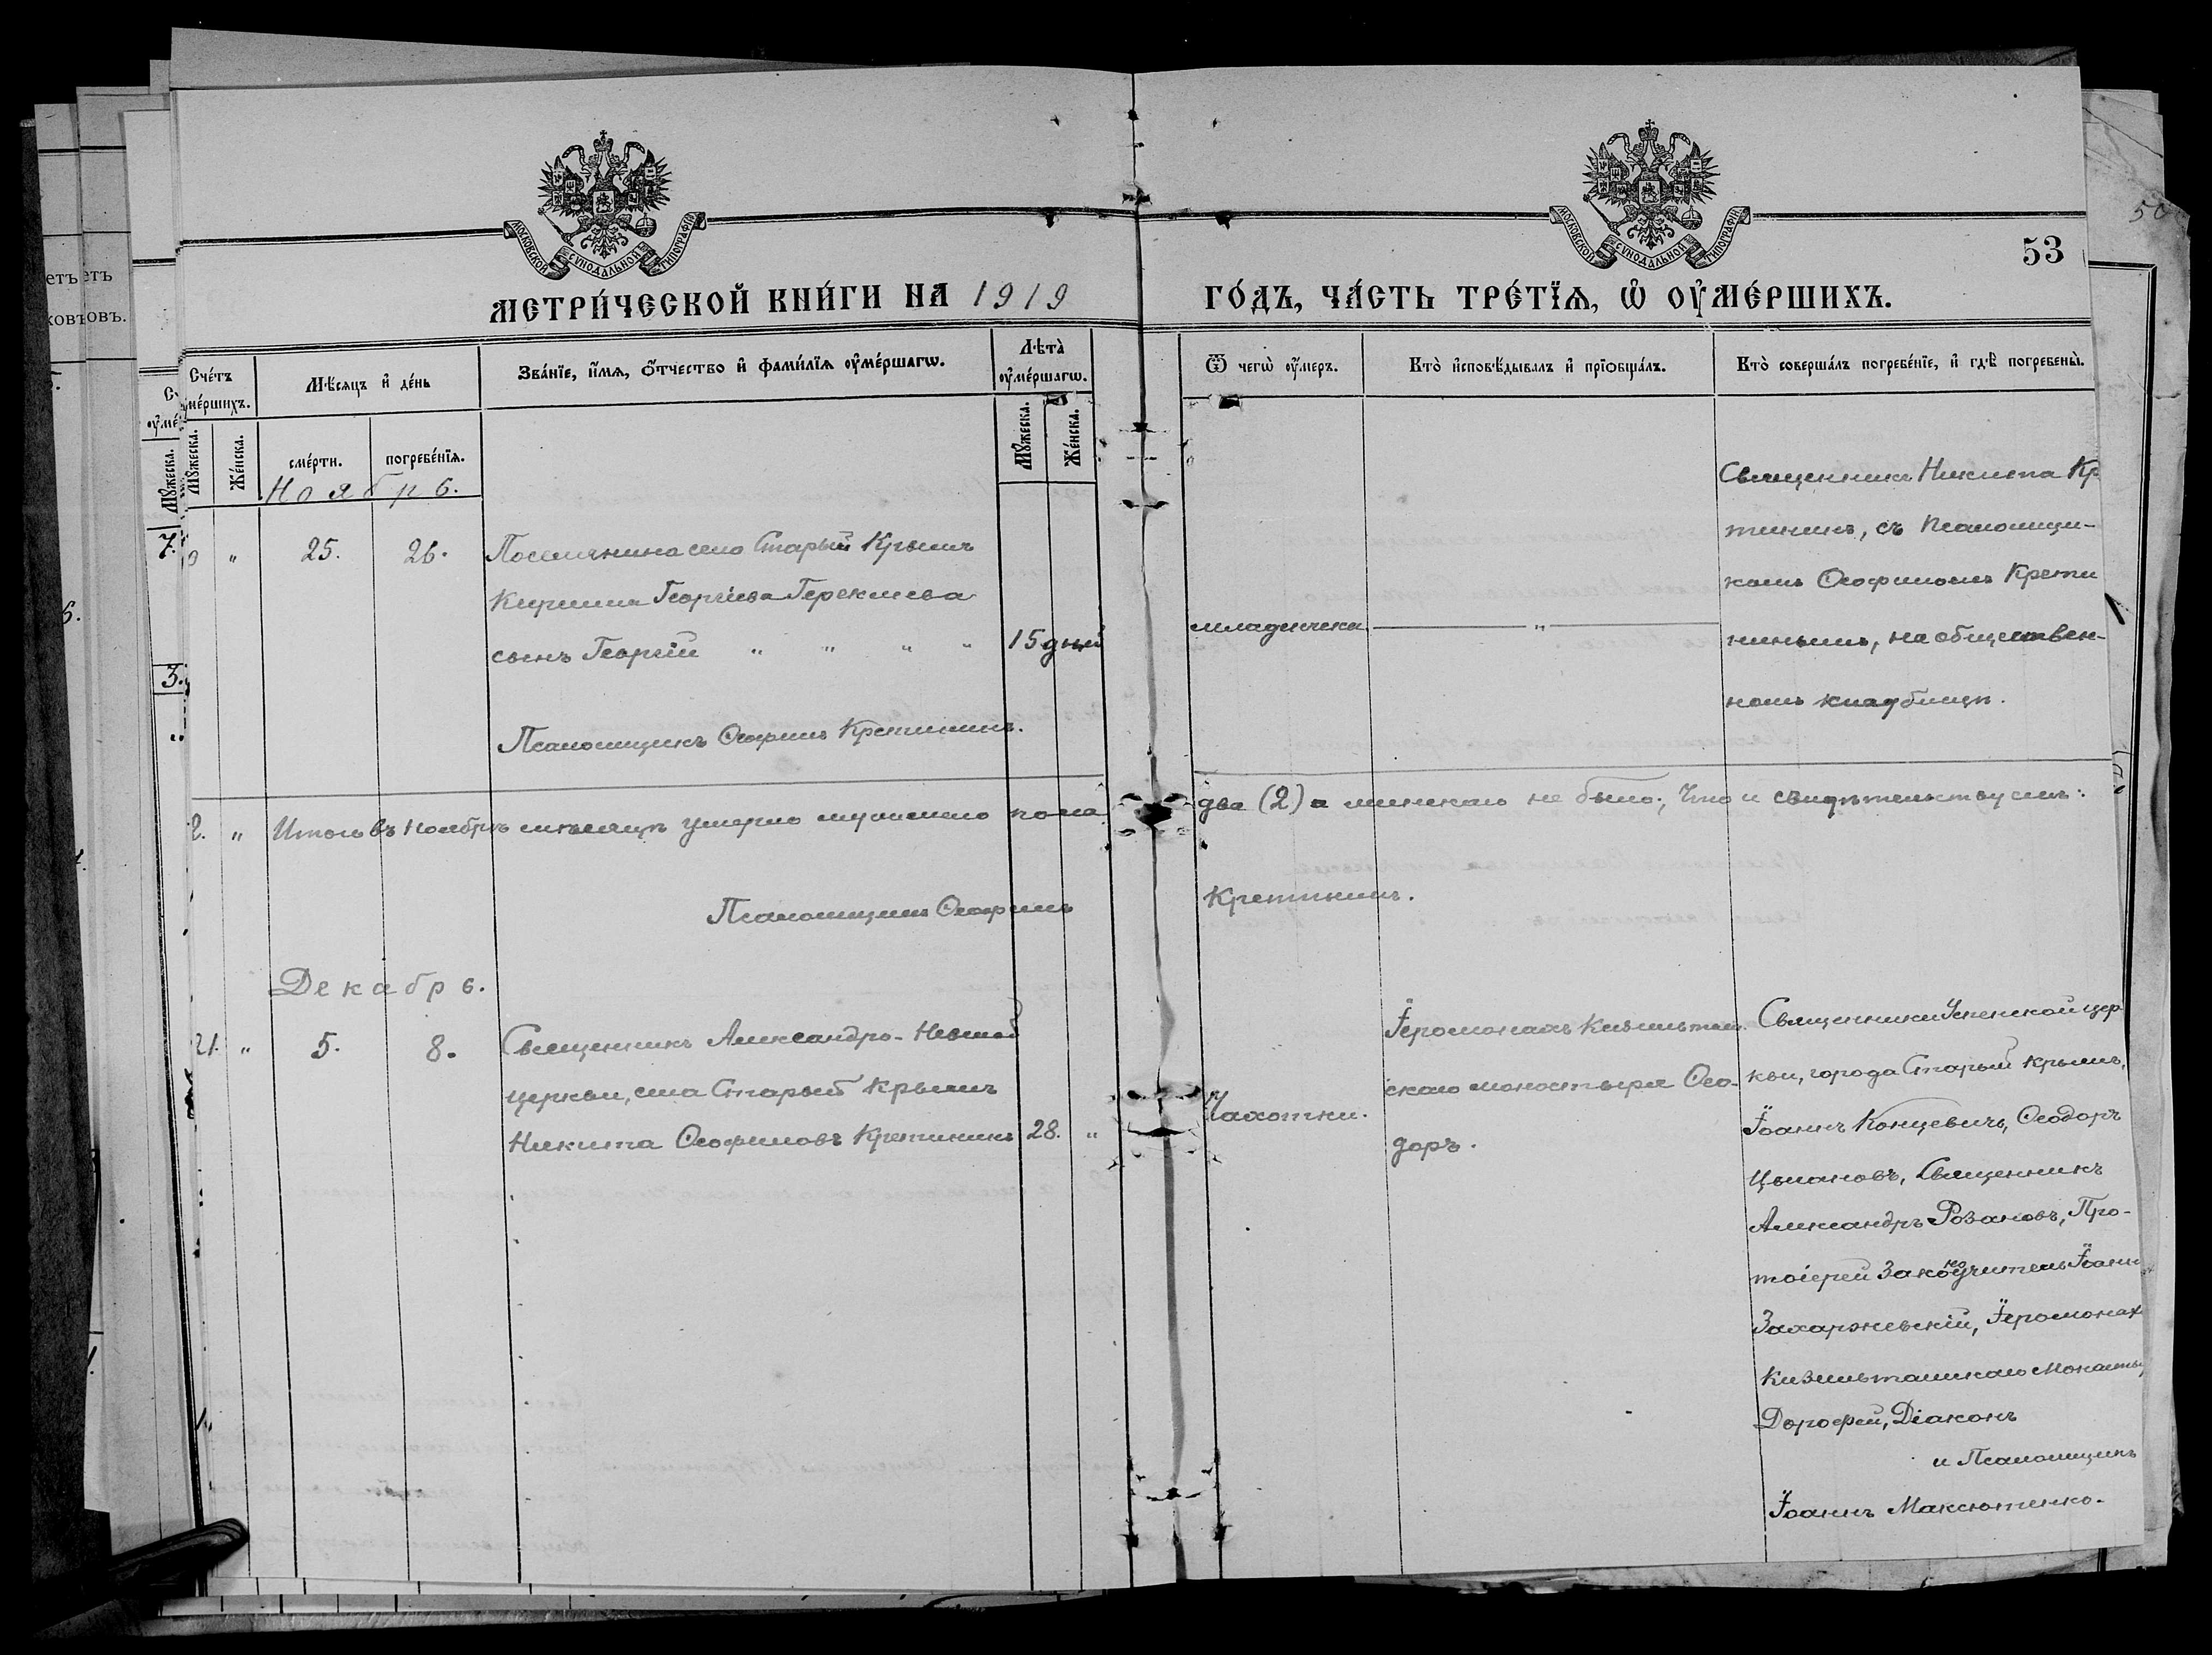 МОСКОВСКОЙ СУНОДАЛЬНОЙ ТИПОГРАФІИ
МОСКОВСКОЙ СУНОДАЛЬНОЙ ТИПОГРАФІИ
53
МЕТРИ́ЧЕСКОЙ КНИ́ГИ НА 1919 ГО́ДЪ, ЧА́СТЬ ТРЕ́ТЇѦ, Ѡ҆ ОУ҆МЕ́РШИХЪ.
Сче́тъ
ме́ршихъ.
Мѣ́сяцъ и҆ де́нь
Зва́нїе, и҆́мѧ, ѻ҆́тчество и҆ фами́лїѧ оу҆ме́ршагѡ.
Лѣта̀
оу҆ме́ршагѡ.
Ѿ чегѡ̀ оу҆́меръ.
Кто̀ и҆сповѣ́дывалъ и҆ прїѡбща́лъ.
Кто̀ соверша́лъ погребе́нїе, и҆ гдѣ̀ погребены̀.
Мꙋ́жеска.
Же́нска.
сме́рти.
погребе́нїѧ.
Мꙋ́жеска.
Же́нска.
Ноябрь.
" 25. 26.
Поселянина село Старый Крымъ
Кирилла Георгіева Герекліева
сынъ Георгій " " " "
15 дней
младенческа
"
Священникъ Никита Кр
тининъ, съ Псаломщи-
комъ Ѳеофиломъ Крети
нинымъ, на обществен-
номъ кладбищѣ.
Псаломщикъ Ѳеофилъ Кретининъ.
2. " Итого въ Ноябрѣ мѣсяцѣ умерло мужескаго пола два (2) а женскаго не было; Что и свидѣтельствуемъ:
Псаломщикъ Ѳеофилъ Кретининъ.
Декабрь.
21. " 5. 8.
Священникъ Александро-Невской
церкви, села Старый Крымъ
Никита Ѳеофиловъ Кретининъ
28. "
Чахотки.
Іеромонахъ Кизильташ
скаго монастыря Ѳео-
доръ.
Священники Успенской цер
кви, города Старый Крымъ,
Іоаннъ Концевичъ, Ѳеодоръ
Цыгановъ, Священникъ
Александръ Розановъ, Про-
тоіерей Законоучитель Іоанн
Захаржевскій, Іеромонах
Кизильташскаго Монасты
Дороѳей, Діаконъ
и Псаломщикъ
Іоаннъ Максютенко.